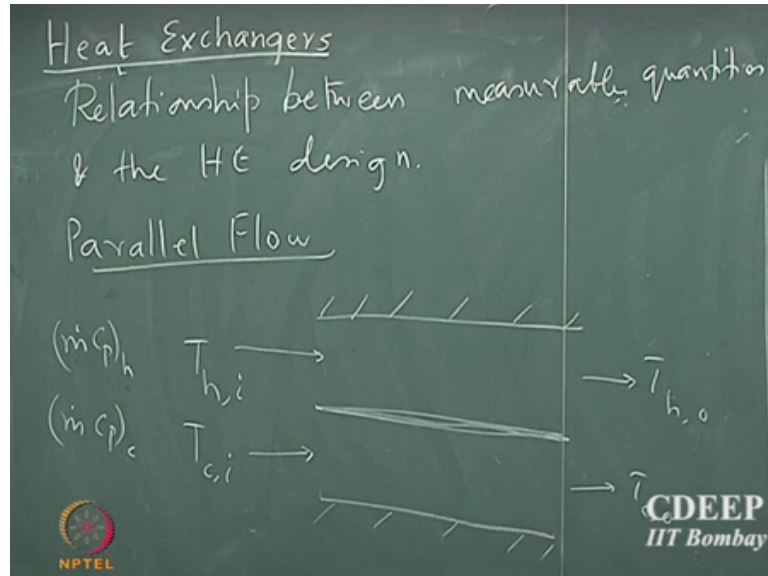 Heat Exchangers
Relationship between measurable quantities
& the HE design.
Parallel Flow
(ṁ Cp)h T h,i → → T h,o
(ṁ Cp)c T c,i → → T
NPTEL
CDEEP
IIT Bombay